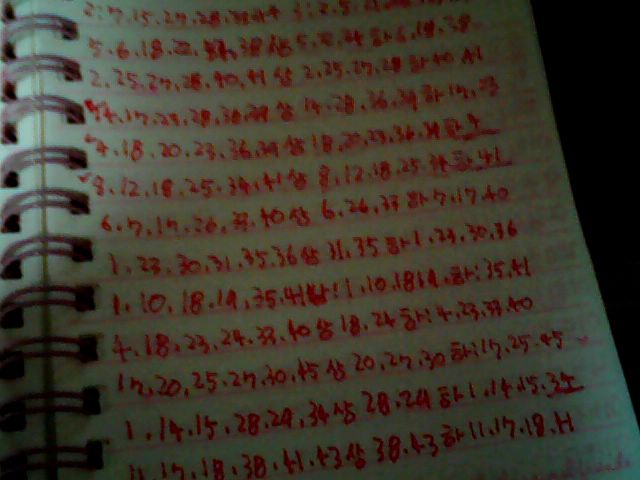 2.25.27.28.40.41 상 2.25.27.28 하 40 41
4.17.23.28.36.39 상 14.28.36.39 하 17.
4.18.20.23.36.39 상 18.20.23.36.39 하 4
8.12.18.25.34.41 상 8.12.18.25.34 하 41
6.7.17.26.33.40 상 6.26.33 하 7.17.40
1.23.30.31.35.36 상 31.35 하 1.23.30.36
1.10.18.19.35.41 상: 1.10.18.19. 하: 35.41
4.18.23.24.33.40 상 18.24 하: 4.23.33.40
17.20.25.27.30.45 상 20.27.30 하: 17.25.45
1.14.15.28.29.34 상 28.29 하 1.14.15.34
11.17.18.38.41.43 상 38.43 하 11.17.18.41